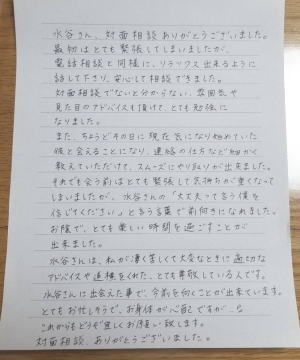 水谷さん、対面相談ありがとうございました。
最初はとても緊張してしまいましたが、
電話相談と同様に、リラックス出来るように
話して下さり、安心して相談できました。
対面相談でないと分からない、雰囲気や
見た目のアドバイスも頂けて、とても勉強に
なりました。
また、ちょうどその日に現在気になり始めていた
彼と会えることになり、連絡の仕方など細かく
教えていただけて、スムーズにやり取りが出来ました。
それでも会う前はとても緊張して気持ちが重くなって
しまいましたが、水谷さんの「大丈夫って言う僕を
信じてください」と言う言葉で前向きになれました。
お陰で、とても楽しい時間を過ごすことが
出来ました。
水谷さんは、私が凄く苦しくて大変なときに適切な
アドバイスや道標をくれた、とても尊敬している人です。
水谷さんに出会えた事で、今前を向くことが出来ています。
とてもお忙しそうで、お身体が心配ですが…
これからもどうぞ宜しくお願い致します。
対面相談、ありがとうございました。